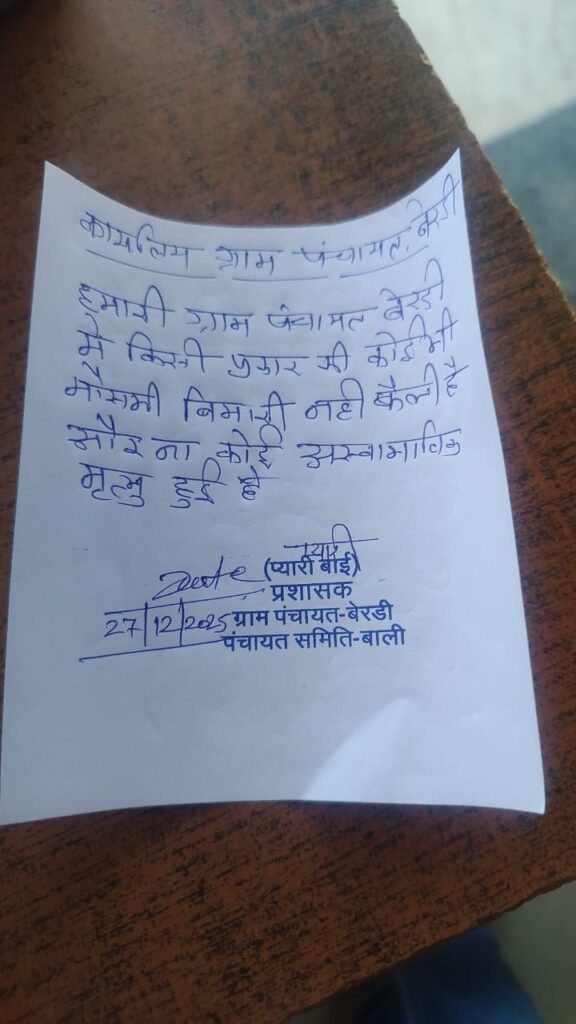 कार्यालय ग्राम पंचायत, बेरडी
हमारी ग्राम पंचायत बेरडी
मे किसी प्रकार की कोई भी
मौसमी बिमारी नही फैली है
और ना कोई अस्वाभाविक
मृत्यु हुई है
प्यारी
(प्यारी बाई)
Date प्रशासक
27/12/2025 ग्राम पंचायत-बेरडी
पंचायत समिति-बाली